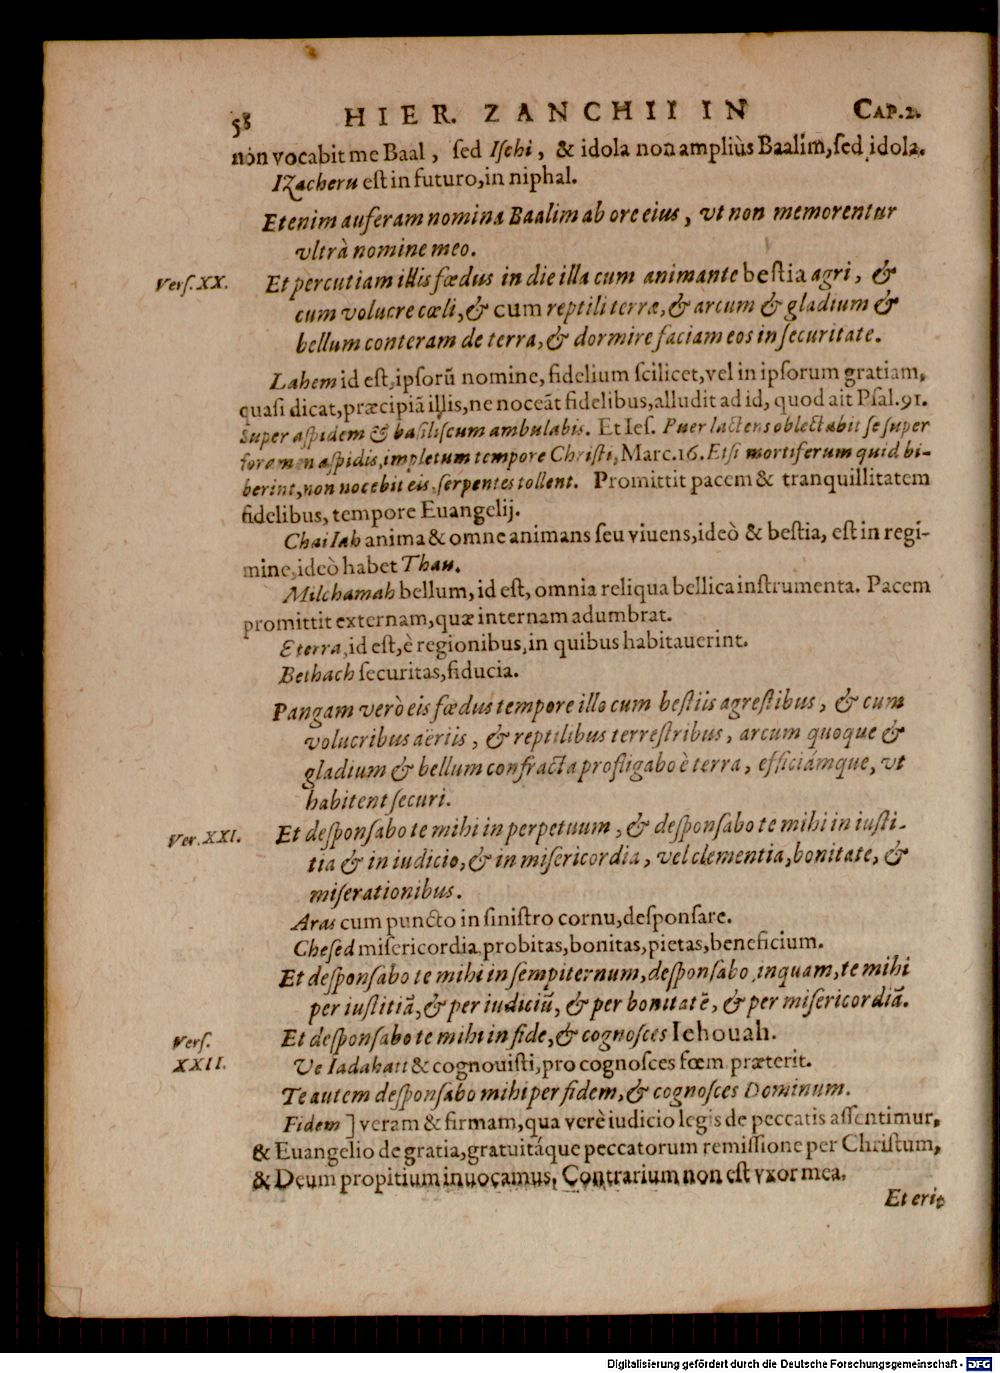 58 HIER. ZANCHII IN CAP.2.
non vocabit me Baal, sed Ischi, & idola non ampliùs Baalim, sed idola.
IZacheru est in futuro, in niphal.
Etenim auferam nomina Baalim ab ore eius, vt non memorentur
vltrà nomine meo.
Vers. XX. Et percutiam illis fœdus in die illa cum animante bestia agri, &
cum volucre cœli, & cum reptili terræ, & arcum & gladium &
bellum conteram de terra, & dormire faciam eos in securitate.
Lahem id est, ipsorũ nomine, fidelium scilicet, vel in ipsorum gratiam,
quasi dicat, præcipiã illis, ne noceãt fidelibus, alludit ad id, quod ait Psal. 91.
Super aspidem & basiliscum ambulabis. Et Ies. Puer lactens oblectabit se super
foramen aspidis, impletum tempore Christi, Marc. 16. Etsi mortiferum quid bi-
berint, non nocebit eis, serpentes tollent. Promittit pacem & tranquillitatem
fidelibus, tempore Euangelij.
Chaiiah anima & omne animans seu viuens, ideò & bestia, est in regi-
mine, ideò habet Thau.
Milchamah bellum, id est, omnia reliqua bellica instrumenta. Pacem
promittit externam, quæ internam adumbrat.
E terra, id est, è regionibus, in quibus habitauerint.
Bethach securitas, fiducia.
Pangam verò eis fœdus tempore illo cum bestiis agrestibus, & cum
volucribus aëriis, & reptilibus terrestribus, arcum quoque &
gladium & bellum confracta profligabo è terra, efficiámque, vt
habitent securi.
Ver. XXI. Et desponsabo te mihi in perpetuum, & desponsabo te mihi in iusti-
tia & in iudicio, & in misericordia, vel clementia, bonitate, &
miserationibus.
Aras cum puncto in sinistro cornu, desponsare.
Chesed misericordia, probitas, bonitas, pietas, beneficium.
Et desponsabo te mihi in sempiternum, desponsabo, inquam, te mihi
per iustitiã, & per iudiciũ, & per bonitatẽ, & per misericordiã.
Vers. XXII. Et desponsabo te mihi in fide, & cognosces Iehouah.
Ve Iadahatt & cognouisti, pro cognosces fœm præterit.
Te autem desponsabo mihi per fidem, & cognosces Dominum.
Fidem] veram & firmam, qua verè iudicio legis de peccatis assentimur,
& Euangelio de gratia, gratuitáque peccatorum remissione per Christum,
& Deum propitium inuocamus. Contrarium non est vxor mea.
Et erit
Digitalisierung gefördert durch die Deutsche Forschungsgemeinschaft - DFG